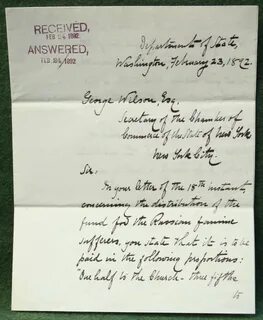 RECEIVED,
FEB 24 1892
ANSWERED,
FEB 24 1892
Department of State,
Washington, February 23, 1892.
George Wilson, Esq.
Secretary of the Chamber of
Commerce of the State of New York
New York City.
Sir:
In your letter of the 18th instant
concerning the distribution of the
fund for the Russian famine
sufferers, you state that it is to be
paid in the following proportions:
"One half to the Church - three fifths
to